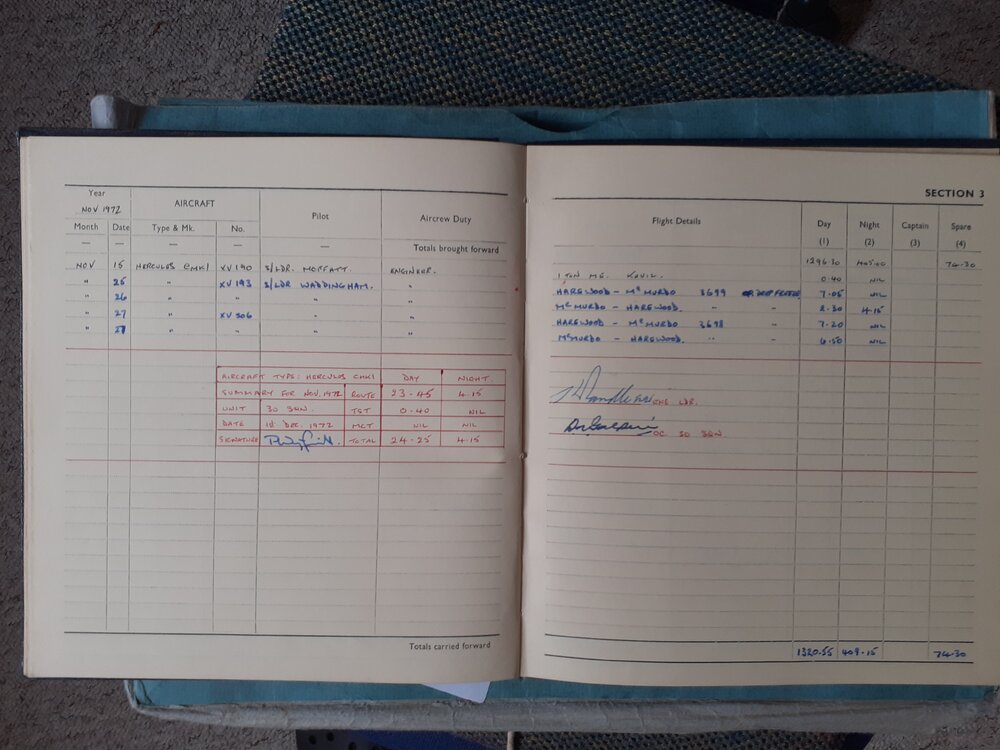 Year
NOV 1972
AIRCRAFT
Pilot
Aircrew Duty
Month Date Type & Mk. No.
— — — — —
Totals brought forward
NOV 15 HERCULES CMK1 XV 190 S/LDR. MOFFATT. ENGINEER.
" 25 " XV 193 S/LDR WADDINGHAM. "
" 26 " " "
" 27 " XV 306 " "
" 27 " " "
AIRCRAFT TYPE: HERCULES CMK1 DAY NIGHT.
SUMMARY FOR NOV. 1972 ROUTE 23.45 4.15
UNIT 30 SQN. TST 0.40 NIL
DATE 1st DEC. 1972 MCT NIL NIL
SIGNATURE TOTAL 24.25 4.15
Totals carried forward
SECTION 3
Flight Details
Day Night Captain Spare
(1) (2) (3) (4)
1296.30 405.00 74.30
0.40 NIL
HAREWOOD - McMURDO 3699 7.05 NIL
McMURDO - HAREWOOD. " 2.30 4.15
HAREWOOD - McMURDO 3698 7.20 NIL
McMURDO - HAREWOOD. " " 6.50 NIL
ENG LDR.
OC 30 SQN
1320.55 409.15 74.30